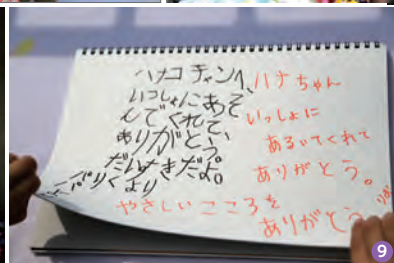 ハナコチャンへ、
いっしょにあそ
んでくれて、
ありがとう。
だいすきだよ。
りくより
ハナちゃん
いっしょに
あるいてくれて
ありがとう。
やさしいこころを
ありがとう。
9